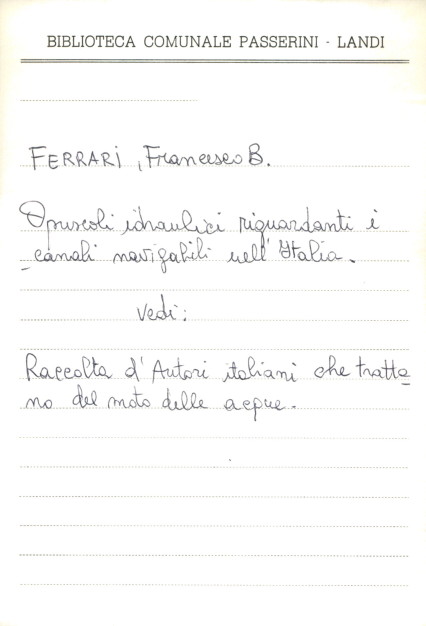 BIBLIOTECA COMUNALE PASSERINI - LANDI
FERRARI, Francesco B.
Opuscoli idraulici riguardanti i
canali navigabili nell'Italia.
Vedi:
Raccolta d'Autori italiani che tratta
no del moto delle acque.